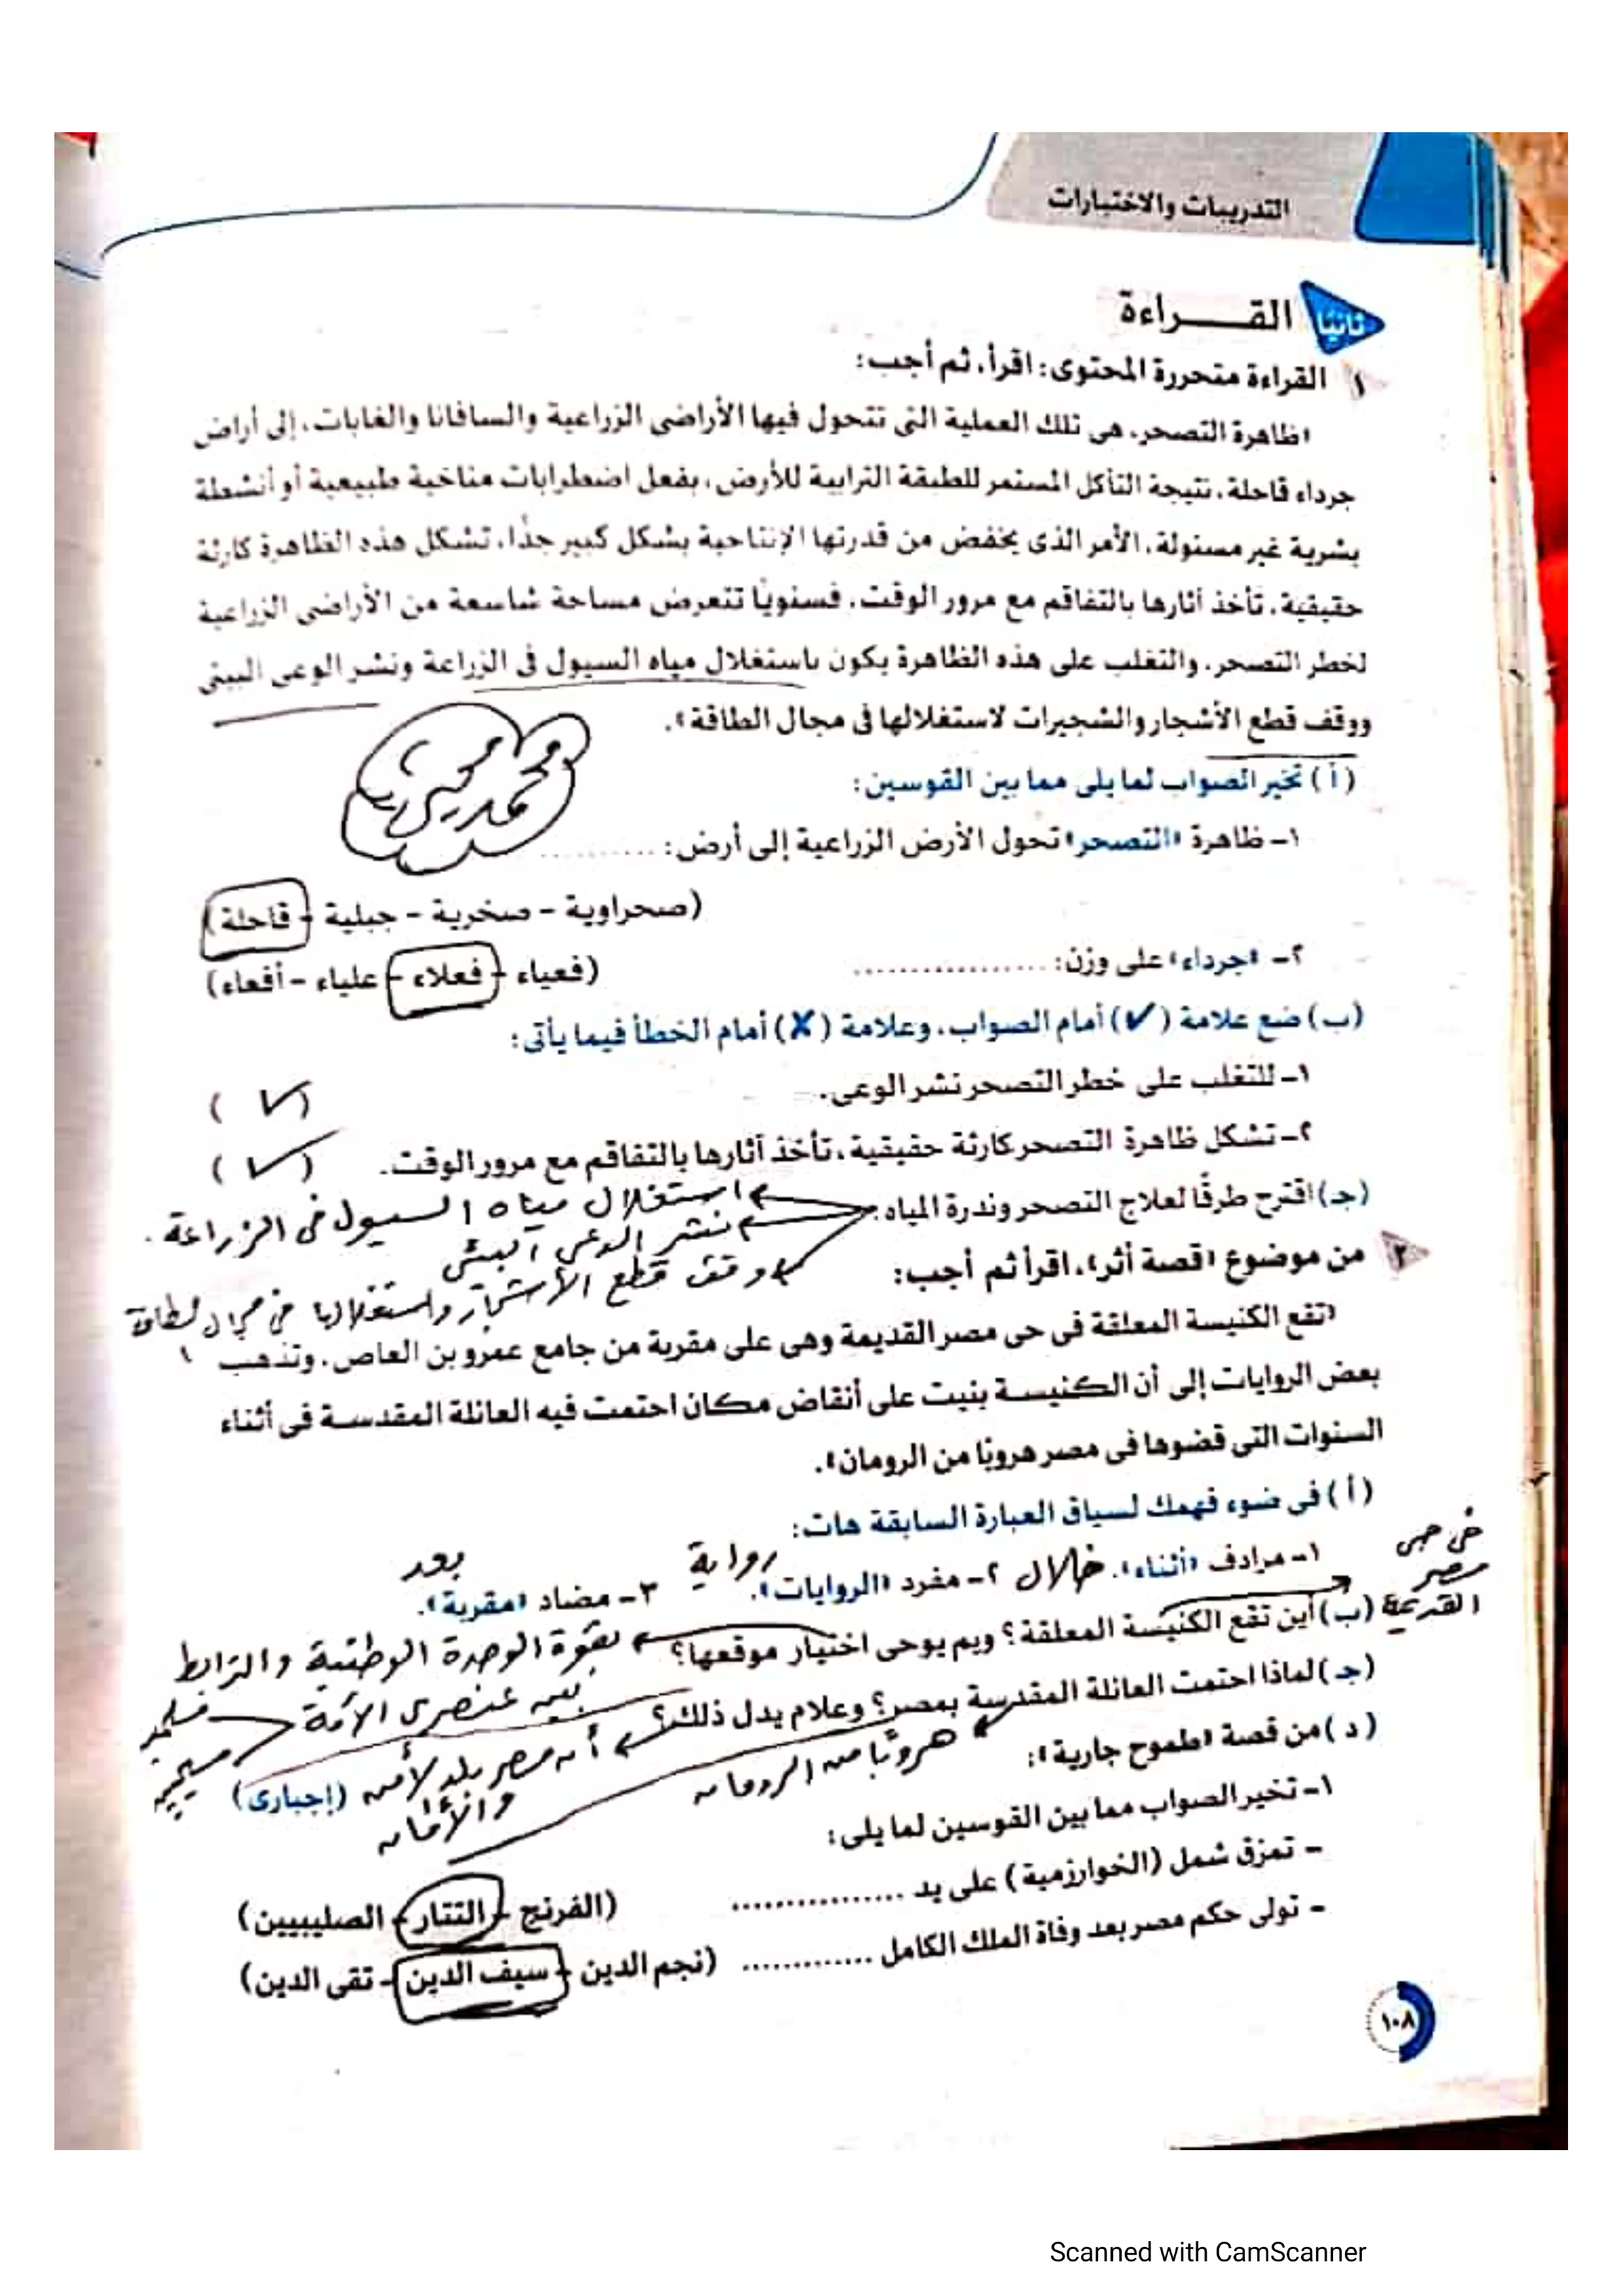 التدريبات والاختبارات
ثانيًا القـــــراءة
١ القراءة متحررة المحتوى: اقرأ، ثم أجب:
«ظاهرة التصحر، هى تلك العملية التى تتحول فيها الأراضى الزراعية والسافانا والغابات، إلى أراض
جرداء قاحلة، نتيجة التآكل المستمر للطبقة الترابية للأرض، بفعل اضطرابات مناخية طبيعية أو أنشطة
بشرية غير مسئولة، الأمر الذى يخفض من قدرتها الإنتاجية بشكل كبير جدًا، تشكل هذه الظاهرة كارثة
حقيقية، تأخذ آثارها بالتفاقم مع مرور الوقت، فسنويًا تتعرض مساحة شاسعة من الأراضى الزراعية
لخطر التصحر، والتغلب على هذه الظاهرة يكون باستغلال مياه السيول فى الزراعة ونشر الوعى البيئى
ووقف قطع الأشجار والشجيرات لاستغلالها فى مجال الطاقة».
محمد
(أ) تخير الصواب لما يلى مما بين القوسين:
١- ظاهرة «التصحر» تحول الأرض الزراعية إلى أرض: ..........
(صحراوية - صخرية - جبلية - قاحلة)
٢- «جرداء» على وزن: ..................
(فعياء - فعلاء - علياء - أفعاء)
(ب) ضع علامة (✓) أمام الصواب، وعلامة (✗) أمام الخطأ فيما يأتى:
١- للتغلب على خطر التصحر نشر الوعى. (✓)
٢- تشكل ظاهرة التصحر كارثة حقيقية، تأخذ آثارها بالتفاقم مع مرور الوقت. (✓)
(جـ) اقترح طرقًا لعلاج التصحر وندرة المياه.
استغلال مياه السيول فى الزراعة.
نشر الوعى البيئى
وقف قطع الأشجار واستغلالها فى مجال الطاقة
٢ من موضوع «قصة أثر»، اقرأ ثم أجب:
«تقع الكنيسة المعلقة فى حى مصر القديمة وهى على مقربة من جامع عمرو بن العاص، وتذهب
بعض الروايات إلى أن الكنيسة بنيت على أنقاض مكان احتمت فيه العائلة المقدسة فى أثناء
السنوات التى قضوها فى مصر هروبًا من الرومان».
(أ) فى ضوء فهمك لسياق العبارة السابقة هات:
١- مرادف «أثناء». خلال ٢- مفرد «الروايات». رواية ٣- مضاد «مقربة». بعد
فى حى
مصر
القديمة
(ب) أين تقع الكنيسة المعلقة؟ وبم يوحى اختيار موقعها؟ بقوة الوحدة الوطنية والترابط
بين عنصرى الأمة
مسلمين
مسيحيين
(جـ) لماذا احتمت العائلة المقدسة بمصر؟ وعلام يدل ذلك؟
هروبًا من الرومان
أن مصر بلد لأمن
والأمان
(إجبارى)
(د) من قصة «طموح جارية»:
١- تخير الصواب مما بين القوسين لما يلى:
- تمزق شمل (الخوارزمية) على يد ................ (الفرنج - التتار - الصليبيين)
- تولى حكم مصر بعد وفاة الملك الكامل ............. (نجم الدين - سيف الدين - تقى الدين)
١٠٨
Scanned with CamScanner